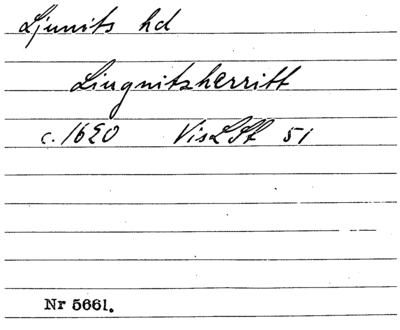 Ljunits hd
Liugnitzherritt
c. 1620 VisLSt 51
Nr 5661.